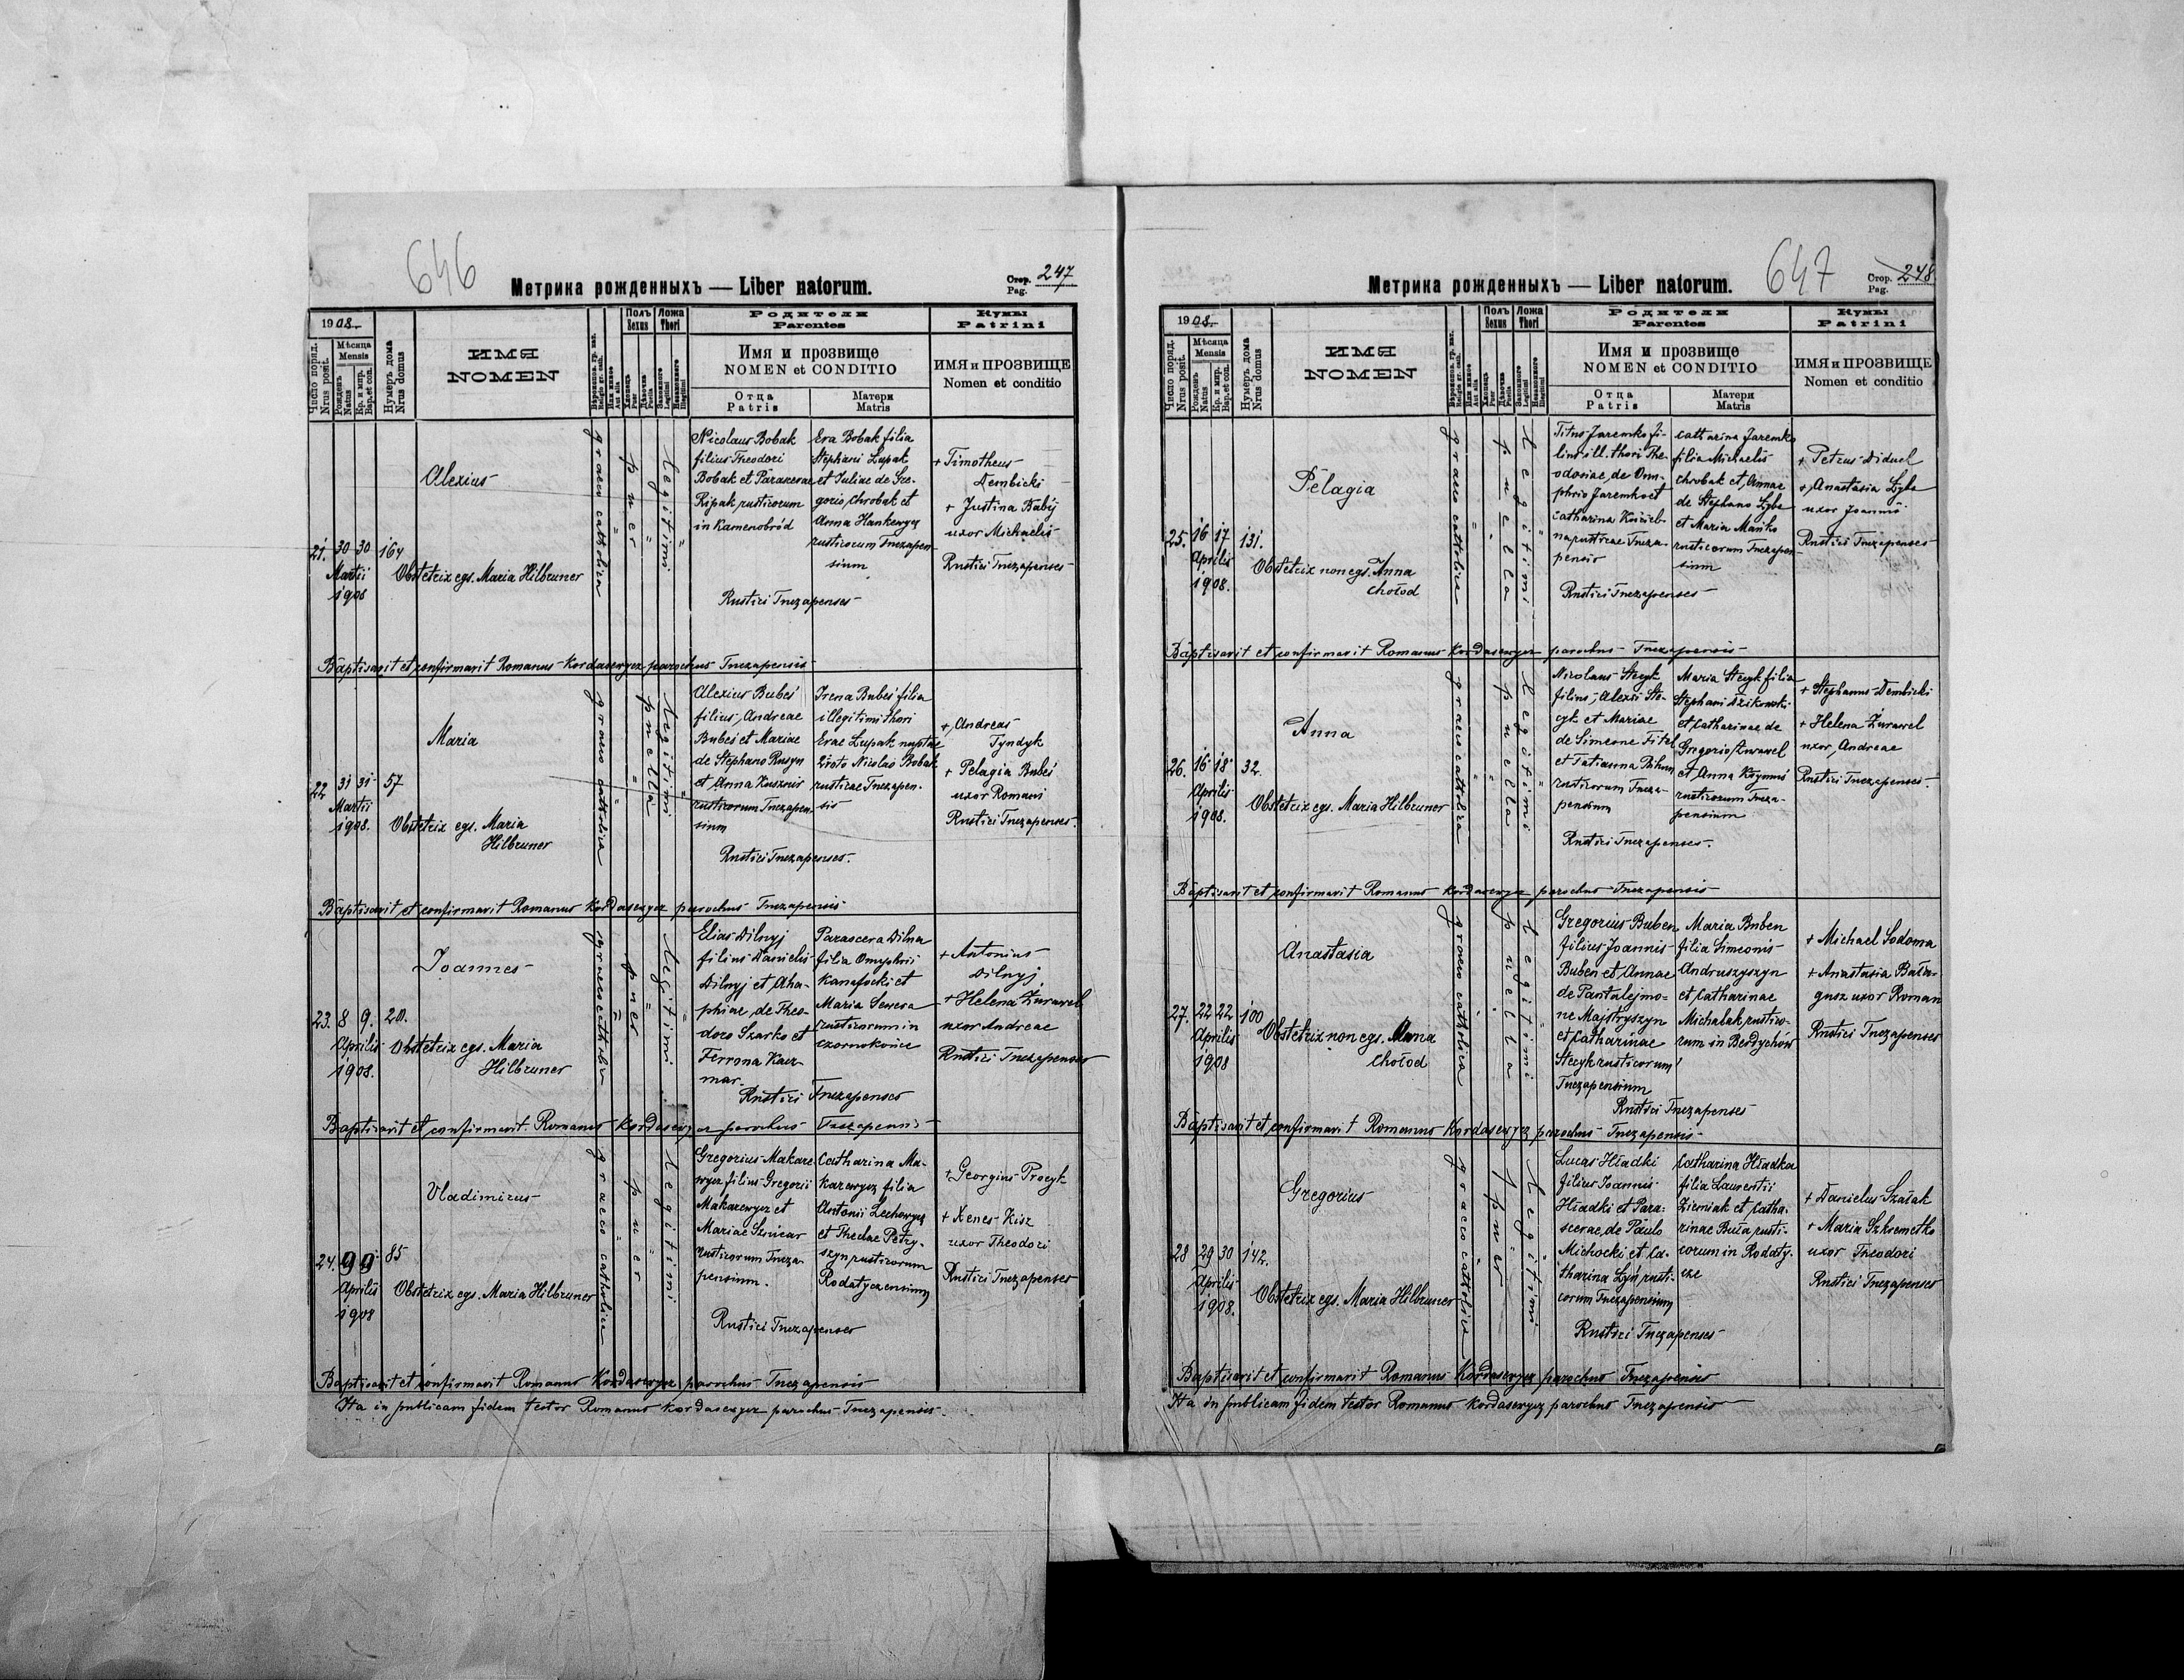 646
Метрика рожденныхъ — Liber natorum.
Стор. Pag. 247
1908
Число поряд. Nrus posit.
Мѣсяца Mensis
Рожденъ Natus
Кр. и мир. Bap. et con.
Нумеръ дома Nrus domus
ИМЯ
NOMEN
Полъ Sexus
Ложа Thori
Родители
Parentes
Имя и прозвище
NOMEN et CONDITIO
Отца Patris
Матери Matris
Кумы
Patrini
ИМЯ и ПРОЗВИЩЕ
Nomen et conditio
21. 30 30 164
Martii
1908
Alexius
Obstetrix egs. Maria Hilbruner
graeco catholica
puer
Legitimi
Nicolaus Bobak
filius Theodori
Bobak et Parascevae
Ripak rusticorum
in Kamenobród
Eva Bobak filia
Stephani Lupak
et Juliae de Gre-
gorio Chrobak et
Anna Hankewycz
rusticorum Tuczapen-
sium
Rustici Tuczapenses
+ Timotheus
Dembicki
+ Justina Babij
uxor Michaelis
Rustici Tuczapenses
Baptisavit et confirmavit Romanus Kordasewycz parochus Tuczapensis
22 31 31 57
Martii
1908.
Maria
Obstetrix egs. Maria
Hilbruner
graeco catholica
puella
Legitimi
Alexius Bubeś
filius Andreae
Bubeś et Mariae
de Stephano Rusyn
et Anna Kusznir
rusticorum Tuczapen-
sium
Irena Bubeś filia
illegitimi thori
Evae Lupak nuptae
Nicolao Bobak
rusticae Tuczapen-
sis
Rustici Tuczapenses.
+ Andreas
Tyndyk
+ Pelagia Bubeś
uxor Romani
Rustici Tuczapenses.
Baptisavit et confirmavit Romanus Kordasewycz parochus Tuczapensis
23. 8 9. 20.
Aprilis
1908.
Joannes
Obstetrix egs. Maria
Hilbruner
graeco cathol.
puer
Legitimi
Elias Dilnyj
filius Danielis
Dilnyj et Aha-
phiae de Theo-
doro Szarko et
Ferrona Kacz-
mar.
Parasceva Dilna
filia Onuphrii
Kanafocki et
Maria Sewera
rusticorum in
Czornokońce
Rustici Tuczapenses
+ Antonius
Dilnyj
+ Helena Żurawel
uxor Andreae
Rustici Tuczapenses
Baptisavit et confirmavit Romanus Kordasewycz parochus Tuczapensis
24. 9 9 85
Aprilis
1908
Vladimirus
Obstetrix egs. Maria Hilbruner
graeco catholica
puer
Legitimi
Gregorius Makare-
wycz filius Gregorii
Makarewycz et
Mariae Szwear
rusticorum Tucza-
pensium.
Catharina Ma-
karewycz filia
Antonii Lechowycz
et Theclae Petry-
szyn rusticorum
Rodatyczensium
Rustici Tuczapenses
+ Georgius Procyk
+ Xenes Kisz
uxor Theodori
Rustici Tuczapenses
Baptisavit et confirmavit Romanus Kordasewycz parochus Tuczapensis
Ita in publicam fidem testor Romanus Kordasewycz parochus Tuczapensis.
647
Метрика рожденныхъ — Liber natorum.
Стор. Pag. 248
1908
Число поряд. Nrus posit.
Мѣсяца Mensis
Рожденъ Natus
Кр. и мир. Bap. et con.
Нумеръ дома Nrus domus
ИМЯ
NOMEN
Полъ Sexus
Ложа Thori
Родители
Parentes
Имя и прозвище
NOMEN et CONDITIO
Отца Patris
Матери Matris
Кумы
Patrini
ИМЯ и ПРОЗВИЩЕ
Nomen et conditio
25. 16 17 131.
Aprilis
1908.
Pelagia
Obstetrix non egs. Anna
Chołod
graeco catholica
puella
Legitimi
Titus Jaremko fi-
lius ill. thori The-
odosiae, de Onu-
phrio Jaremko et
Catharina
rusticae Tucza-
pensis
Catharina Jaremko
filia Michaelis
Chrobak et Annae
de Stephano Lyba
et Maria Mańko
rusticorum Tuczapen-
sium
Rustici Tuczapenses
+ Petrus Diduch
+ Anastasia Lyba
uxor Joannis
Rustici Tuczapenses
Baptisavit et confirmavit Romanus Kordasewycz parochus Tuczapensis
26. 16 18 32.
Aprilis
1908.
Anna
Obstetrix egs. Maria Hilbruner
graeco catholica
puella
Legitimi
Nicolaus Stecyk
filius Alexii Ste-
cyk et Mariae
de Simeone Fitel
et Tatianna Bihun
rusticorum Tucza-
pensium
Maria Stecyk filia
Stephani Dzikowski
et Catharinae de
Gregorio Żurawel
et Anna
rusticorum Tucza-
pensium
Rustici Tuczapenses.
+ Stephanus Dembicki
+ Helena Żurawel
uxor Andreae
Rustici Tuczapenses.
Baptisavit et confirmavit Romanus Kordasewycz parochus Tuczapensis
27. 22 22 100
Aprilis
1908
Anastasia
Obstetrix non egs. Anna
Chołod
graeco catholica
puella
Legitimi
Gregorius Buben
filius Joannis
Buben et Annae
de Pantalejmo-
ne Majstryszyn
et Catharinae
Stecyk rusticorum
Tuczapensium
Maria Buben
filia Simeonis
Andruszyszyn
et Catharinae
Michalak rustico-
rum in Berdychów
Rustici Tuczapenses
+ Michael Sodoma
+ Anastasia Bała-
gusz uxor Roman
Rustici Tuczapenses
Baptisavit et confirmavit Romanus Kordasewycz parochus Tuczapensis
28 29 30 142.
Aprilis
1908.
Gregorius
Obstetrix egs. Maria Hilbruner
graeco catholica
puer
Legitimi
Lucas Hładki
filius Joannis
Hładki et Para-
scevae, de Paulo
Michocki et Ca-
tharina Łyń rusti-
corum Tuczapensium
Catharina Hładka
filia Laurentii
Ziemiak et Catha-
rinae Buła rusti-
corum in Rodaty-
cze
Rustici Tuczapenses
+ Danielus Szałak
+ Maria Szkremetko
uxor Theodori
Rustici Tuczapenses
Baptisavit et confirmavit Romanus Kordasewycz parochus Tuczapensis
Ita in publicam fidem testor Romanus Kordasewycz parochus Tuczapensis